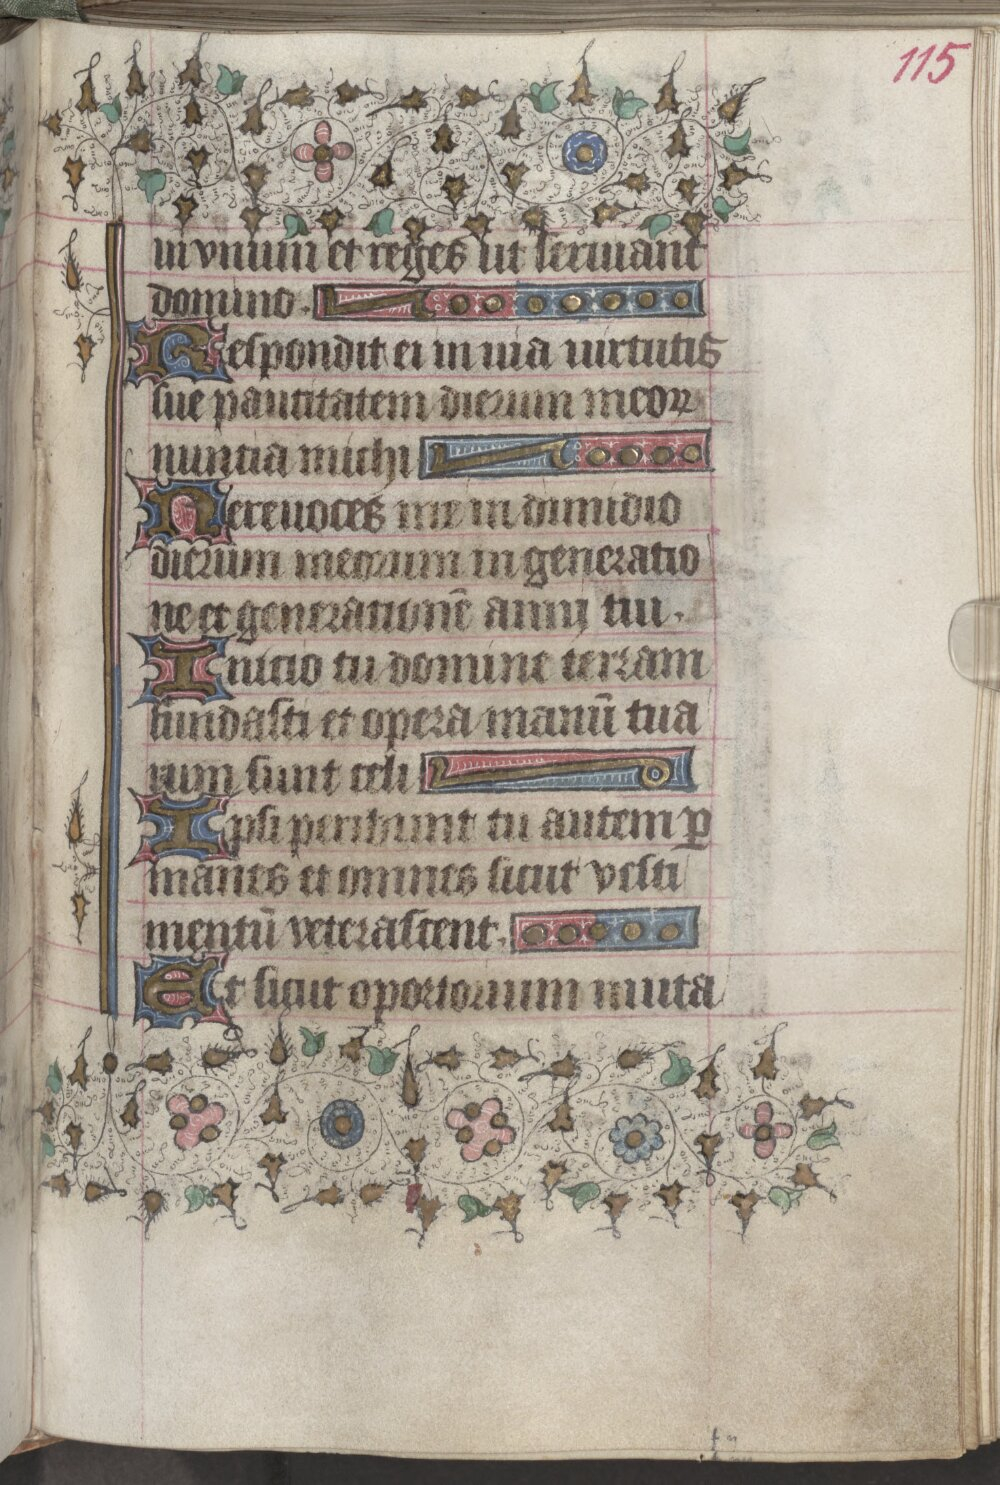 115
in vnum et reges ut seruiant
domino.
Respondit ei in uia uirtutis
sue paucitatem dierum meoꝝ
nuncia michi
Ne reuoces me in dimidio
dierum meorum in generatio
ne et generationē anni tui.
Inicio tu domine terram
fundasti et opera manuū tua
rum sunt celi
Ipsi peribunt tu autem ꝑ
manes et omnes sicut vesti
mentū veterascent.
Et sicut oportorium muta